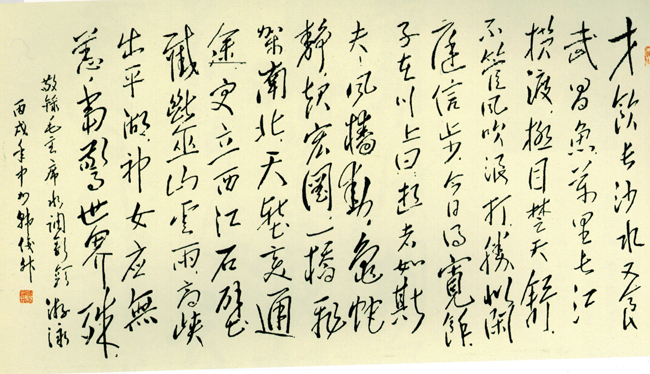 才饮长沙水又食
武昌魚萬里长江
横渡极目楚天舒
不管风吹浪打勝似闲
庭信步今日得寬馀
子在川上曰逝者如斯
夫风樯動龟蛇
静起宏圖一橋飛
架南北天塹变通
途更立西江石壁
截断巫山雲雨高峡
出平湖神女应無
恙當驚世界殊
敬録毛主席水调歌头游泳
丙戌年中州韩